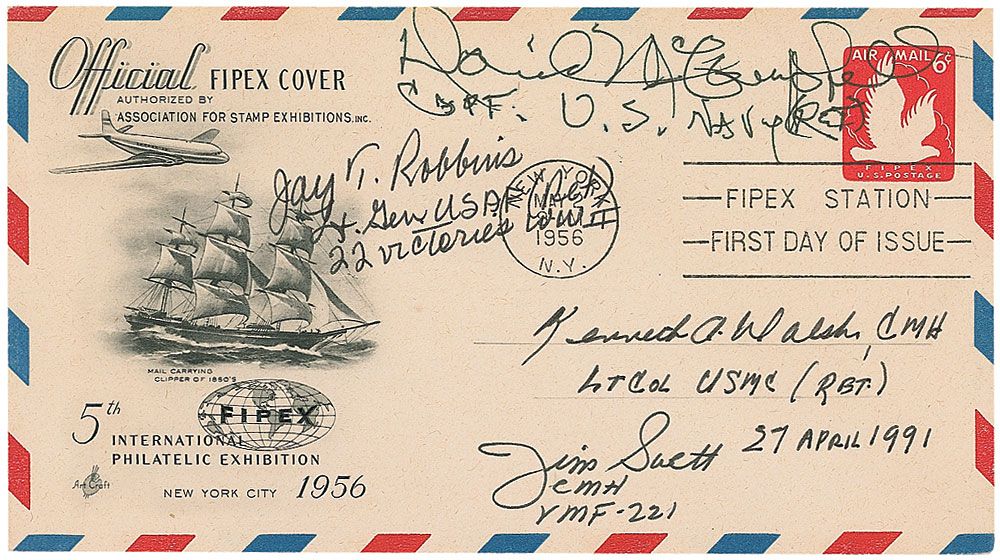 Official FIPEX COVER
AUTHORIZED BY
ASSOCIATION FOR STAMP EXHIBITIONS, INC.
David McCampbell
Capt. U.S. Navy (Ret)
AIR MAIL 6¢
FIPEX
U.S. POSTAGE
Jay T. Robbins
Lt. Gen USAF (Ret)
22 victories WW II
NEW YORK
MAY 2
1956
N.Y.
FIPEX STATION
FIRST DAY OF ISSUE
MAIL CARRYING
CLIPPER OF 1850'S
FIPEX
5th
INTERNATIONAL
PHILATELIC EXHIBITION
NEW YORK CITY 1956
Art Craft
Kenneth A. Walsh, CMH
LTCOL USMC (RET.)
27 APRIL 1991
Jim Swett
CMH
VMF-221